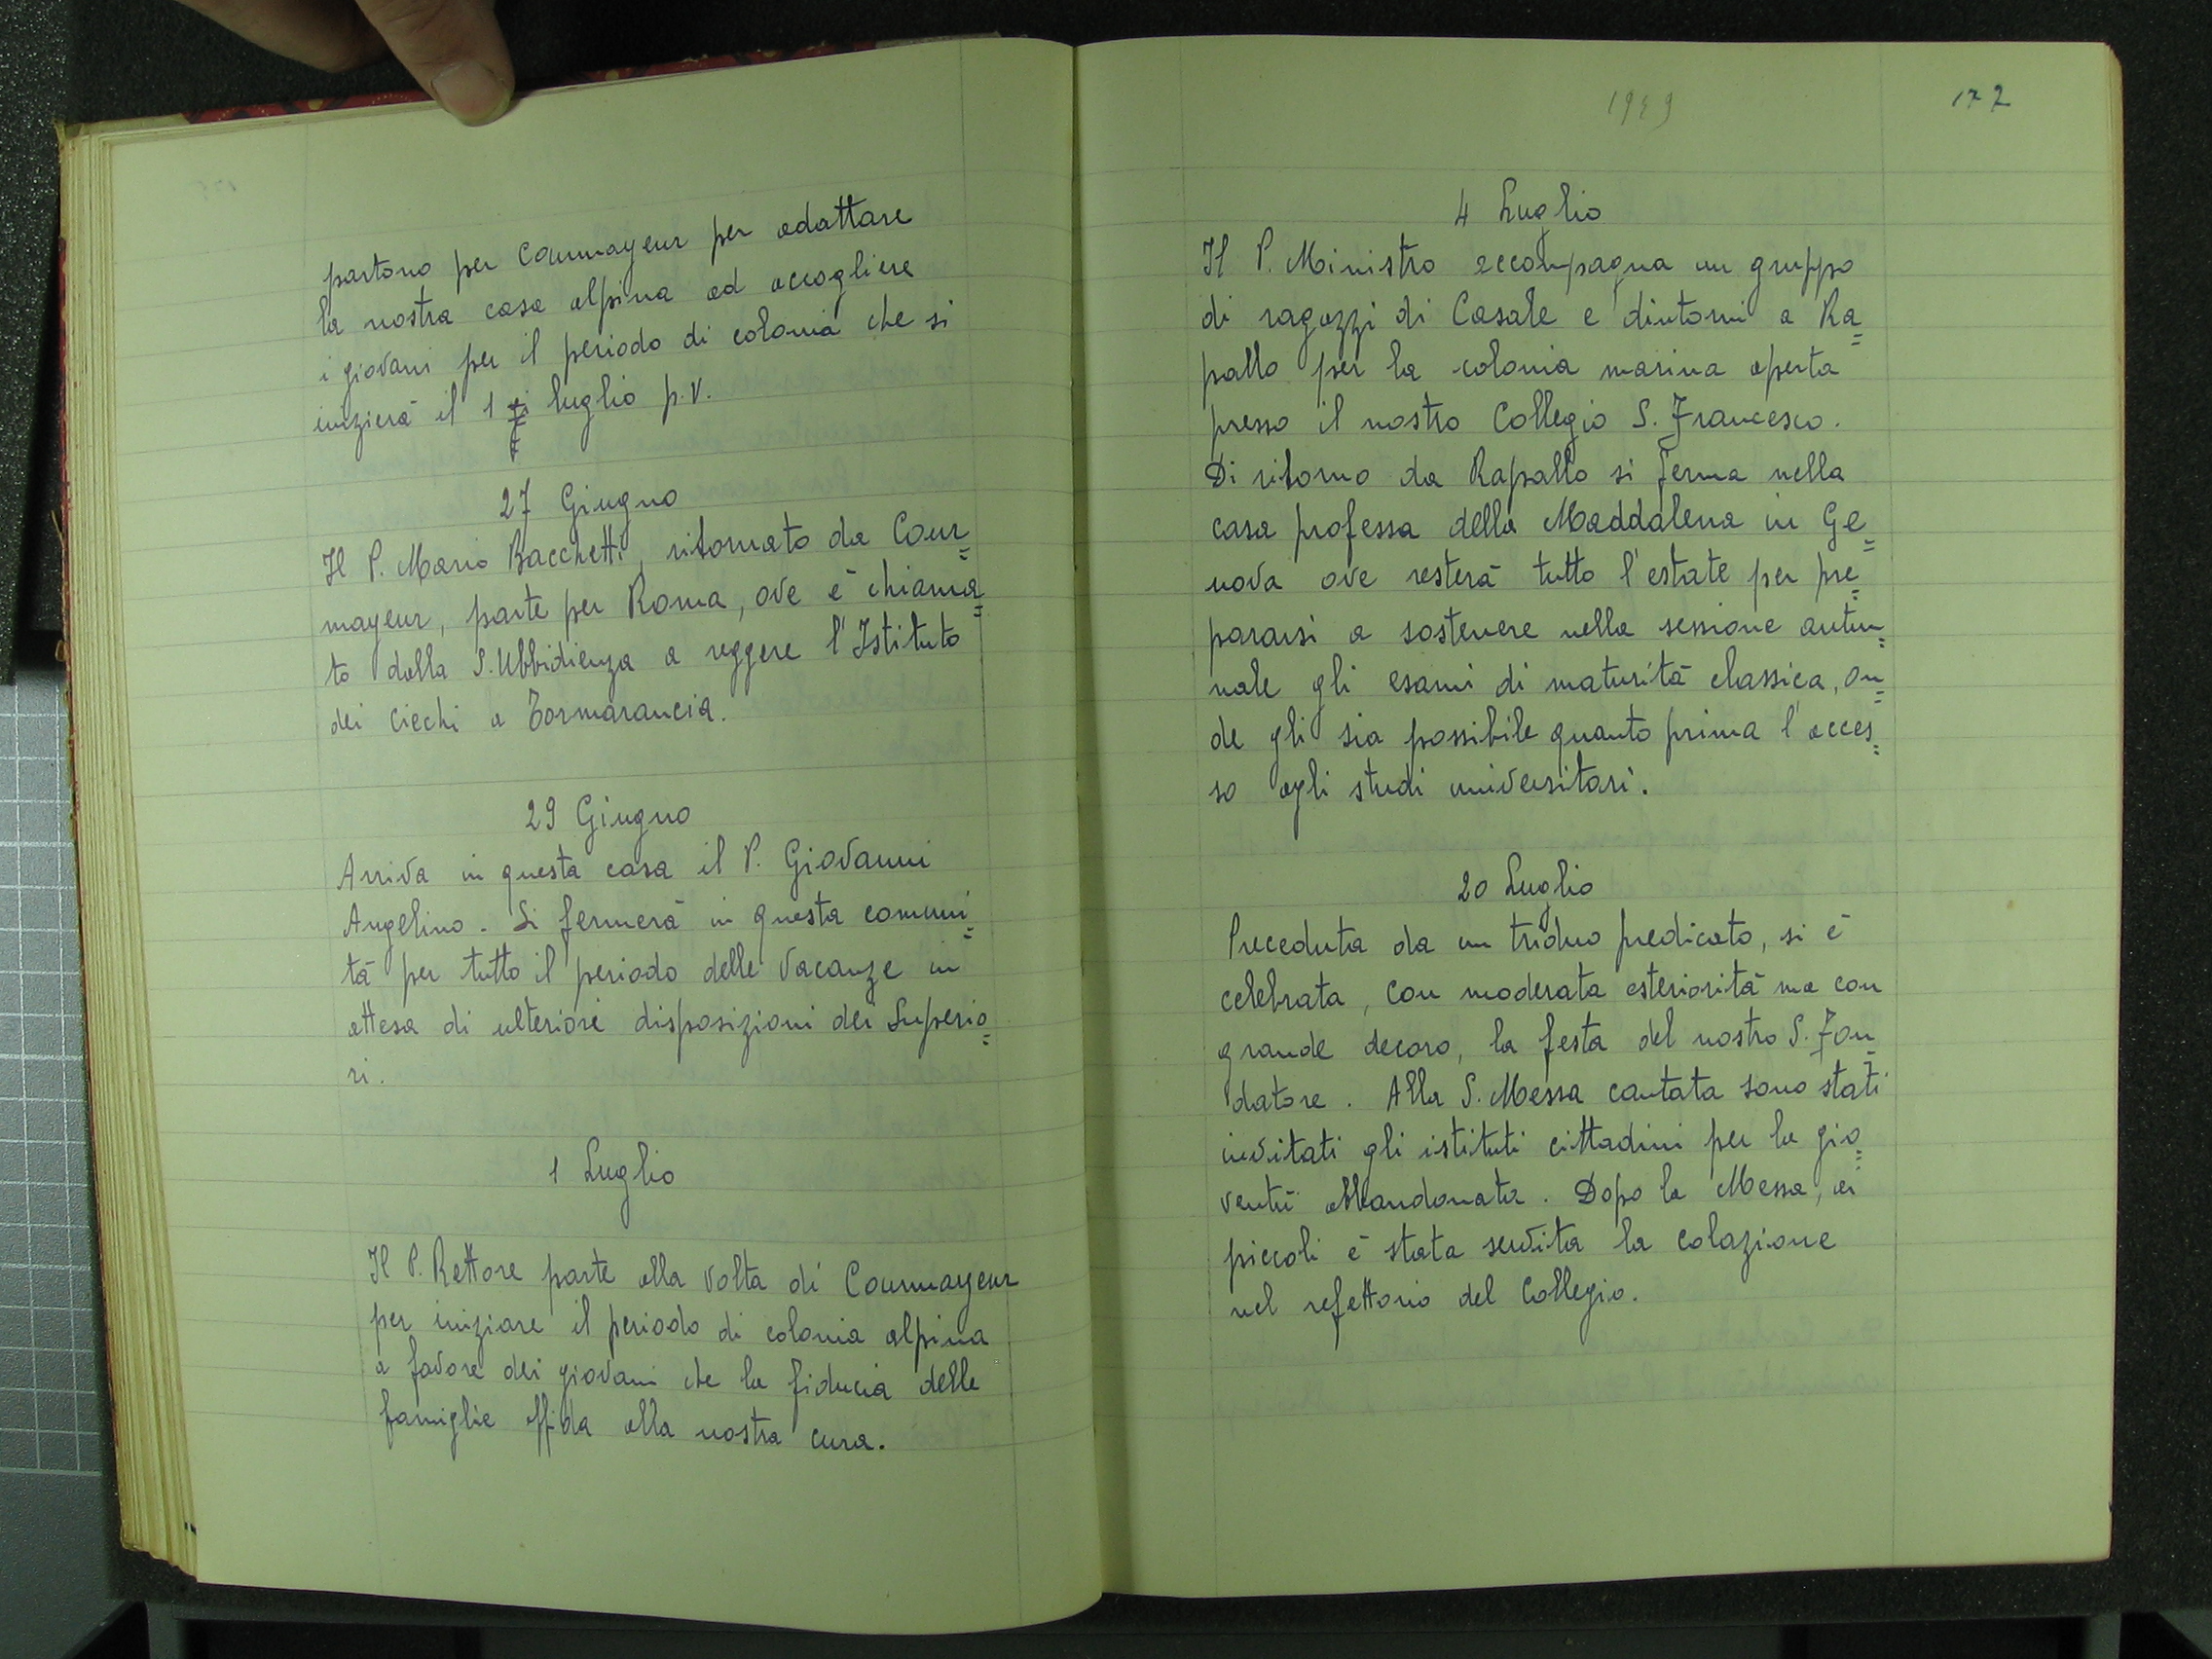 partono per Courmayeur per adattare
la nostra casa alpina ad accogliere
i giovani per il periodo di colonia che si
inzierà il 1 luglio p.v.
27 Giugno
Il P. Mario Bacchetti, ritornato da Cour=
mayeur, parte per Roma, ove è chiama=
to dalla S. Ubbidienza a reggere l'Istituto
dei Ciechi a Tormarancia.
29 Giugno
Arriva in questa casa il P. Giovanni
Angelino. Si fermerà in questa comuni=
tà per tutto il periodo delle vacanze in
attesa di ulteriori disposizioni dei Superio=
ri.
1 Luglio
Il P. Rettore parte alla volta di Courmayeur
per iniziare il periodo di colonia alpina
a favore dei giovani che la fiducia delle
famiglie affida alla nostra cura.
1949
172
4 Luglio
Il P. Ministro accompagna un gruppo
di ragazzi di Casale e dintorni a Ra=
pallo per la colonia marina aperta
presso il nostro Collegio S. Francesco.
Di ritorno da Rapallo si ferma nella
casa professa della Maddalena in Ge=
nova ove resterà tutto l'estate per pre=
pararsi a sostenere nella sessione autun=
nale gli esami di maturità classica, on=
de gli sia possibile quanto prima l'acces=
so agli studi universitari.
20 Luglio
Preceduta da un triduo predicato, si è
celebrata, con moderata esteriorità ma con
grande decoro, la festa del nostro S. Fon=
datore. Alla S. Messa cantata sono stati
invitati gli istituti cittadini per la gio=
ventù abbandonata. Dopo la Messa, ai
piccoli è stata servita la colazione
nel refettorio del Collegio.